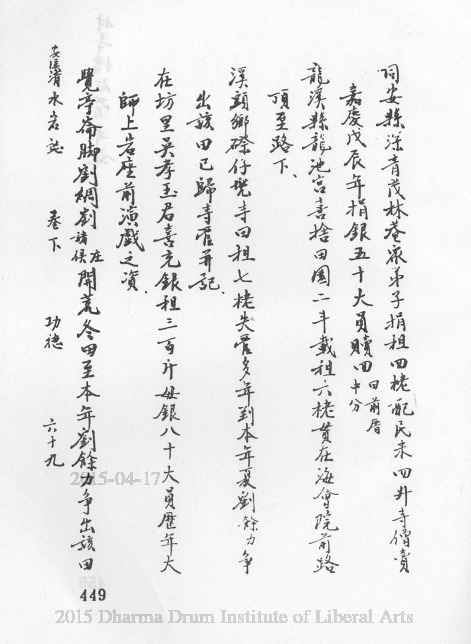 同安縣深青茂林菴眾弟子捐租四栳配民米四升寺僧賣
嘉慶戊辰年捐銀五十大員贖四中分田前厝
龍溪縣龍池宮喜捨田園二斗載租六栳貫在海會院前路
頂至路下、
溪頭鄉磜仔兜寺田租七栳失管多年到本年夏劉餘力爭
出該田已歸寺管并記、
在坊里吳孝玉君喜充銀租三百斤母銀八十大員歷年大
師上岩座前演戲之資、
覺亭崙腳劉綢劉諸侯在開荒冬田至本年劉餘力爭出該田
安溪清水岩誌 卷下 功德 六十九
2015-04-17
449
2015 Dharma Drum Institute of Liberal Arts